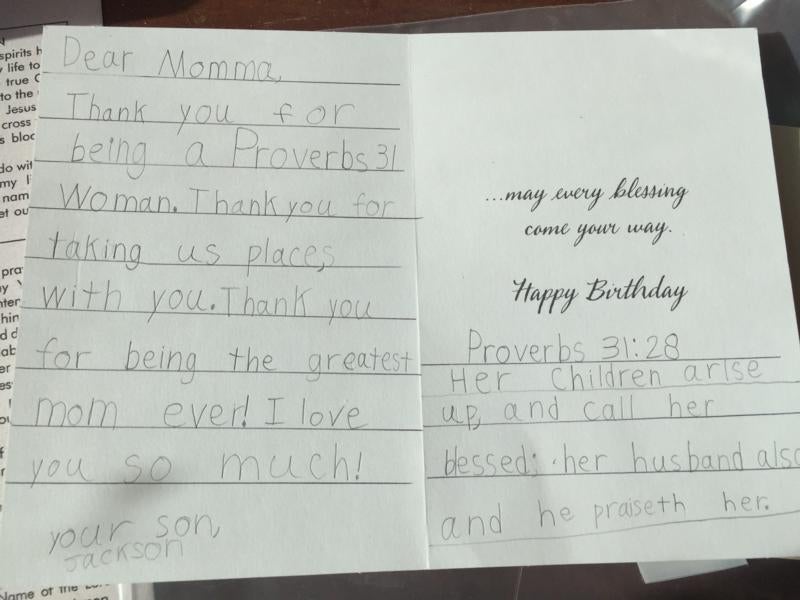 Dear Momma,
Thank you for
being a Proverbs 31
Woman. Thank you for
taking us places
with you. Thank you
for being the greatest
mom ever! I love
you so much!
your son,
Jackson
...may every blessing
come your way.
Happy Birthday
Proverbs 31:28
Her Children arise
up, and call her
blessed; her husband also
and he praiseth her.
spirits
life to
true
to the
Jesus
cross
do
my
pra
Name of the